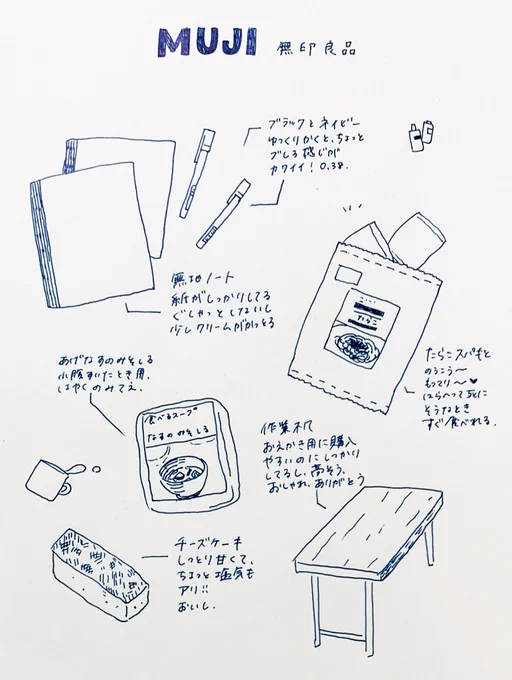 MUJI 無印良品
ブラックとネイビー
ゆっくりかくと、ちょっと
ブレる感じが
カワイイ! 0.38.
無地ノート
紙がしっかりしてる
ぐしゃっとしないし
少しクリームがかってる
たらこ
たらこスパもと
のうこう〜
もったり〜♥
はらへって死に
そうなとき
すぐ食べれる.
あげなすのみそしる
小腹すいたとき用.
はやくのみてえ.
食べるスープ
なすのみそしる
作業机
おえかき用に購入
やすいのにしっかり
してるし、高そう.
おしゃれ、ありがとう
チーズケーキ
しっとり甘くて、
ちょっと塩気も
アリ!!
おいし.